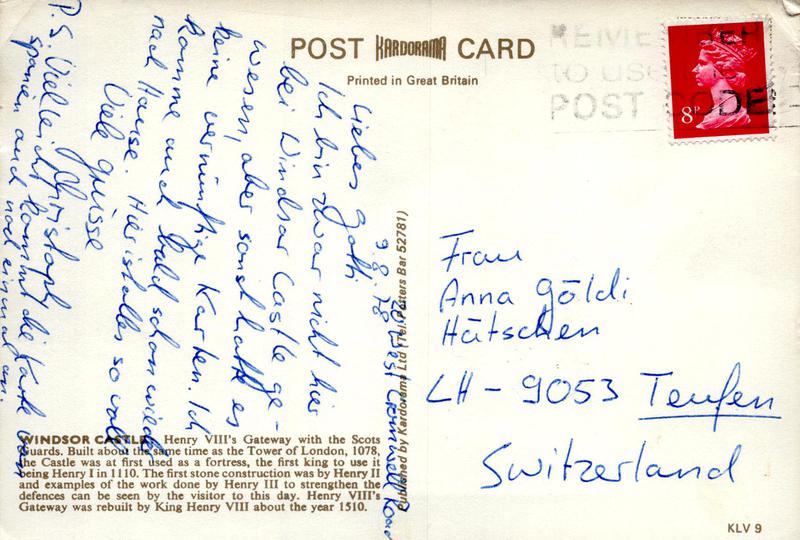 POST KARDORAMA CARD
Printed in Great Britain
REMEMBER
to use
POST CODE
8P
9.8.78
20 West Cromwell Road
Liebes Gotti
Ich bin zwar nicht hier
bei Windsor Castle ge-
wesen, aber sonst hatte es
keine vernünftige Karten. Ich
komme auch bald schon wieder
nach Hause. Hier ist alles so voll
Viele Grüsse
Christoph
P.S. Vielleicht kommt die Karte von
Spanien auch noch einmal an.
Published by Kardorama Ltd (Tel. Potters Bar 52781)
Frau
Anna Göldi
Hätschen
CH-9053 Teufen
Switzerland
WINDSOR CASTLE. Henry VIII's Gateway with the Scots
Guards. Built about the same time as the Tower of London, 1078,
the Castle was at first used as a fortress, the first king to use it
being Henry I in 1110. The first stone construction was by Henry II
and examples of the work done by Henry III to strengthen the
defences can be seen by the visitor to this day. Henry VIII's
Gateway was rebuilt by King Henry VIII about the year 1510.
KLV 9